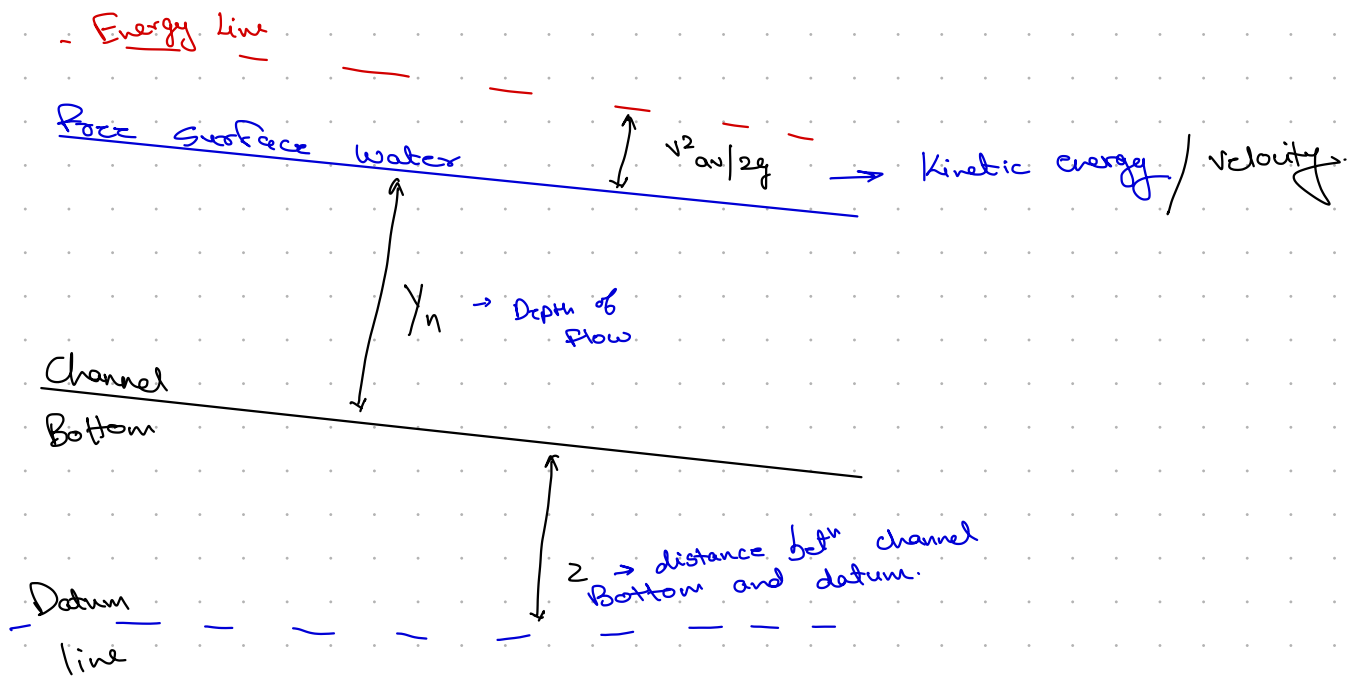 Energy Line
Free Surface Water
V²av/2g → Kinetic energy / velocity
Yn → Depth of
flow
Channel
Bottom
Z → distance betⁿ channel
Bottom and datum.
Datum
line